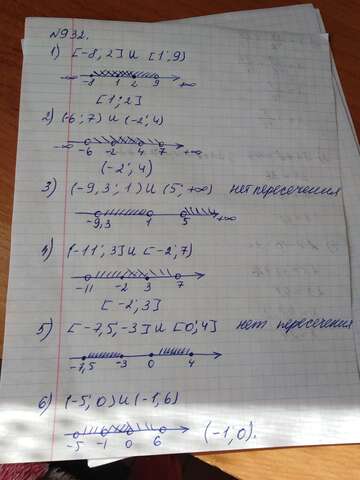 №932.
1) [-8, 2] и [1; 9)
-∞ -8 1 2 9 +∞
[1; 2]
2) (-6; 7) и (-2; 4)
-∞ -6 -2 4 7 +∞
(-2; 4)
3) (-9,3; 1) и (5; +∞) нет пересечения
-9,3 1 5 +∞
4) (-11; 3] и [-2; 7)
-11 -2 3 7
[-2; 3]
5) [-7,5, -3] и [0; 4] нет пересечения
-7,5 -3 0 4
6) (-5; 0) и (-1, 6)
-5 -1 0 6 (-1; 0).